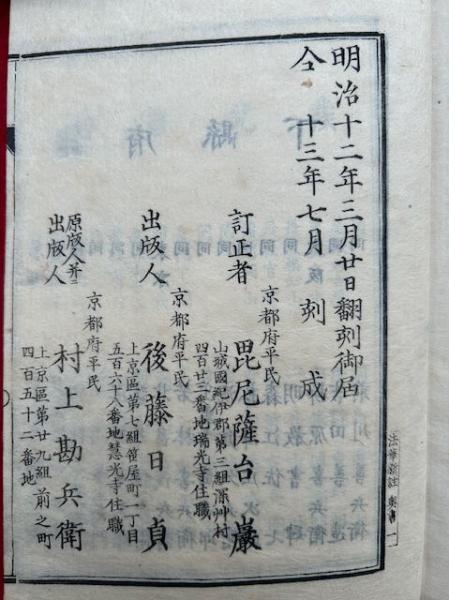 明治十二年三月廿日翻刻御届
仝 十三年七月 刻 成
京都府平民
訂正者 毘尼薩台巖
山城國紀伊郡第三組深艸村
四百廿三番地瑞光寺住職
京都府平民
出版人 後藤日貞
上京區第七組笹屋町一丁目
五百六十八番地慧光寺住職
京都府平民
原版人并ニ
出版人 村上勘兵衛
上京區第廿九組前之町
四百五十二番地